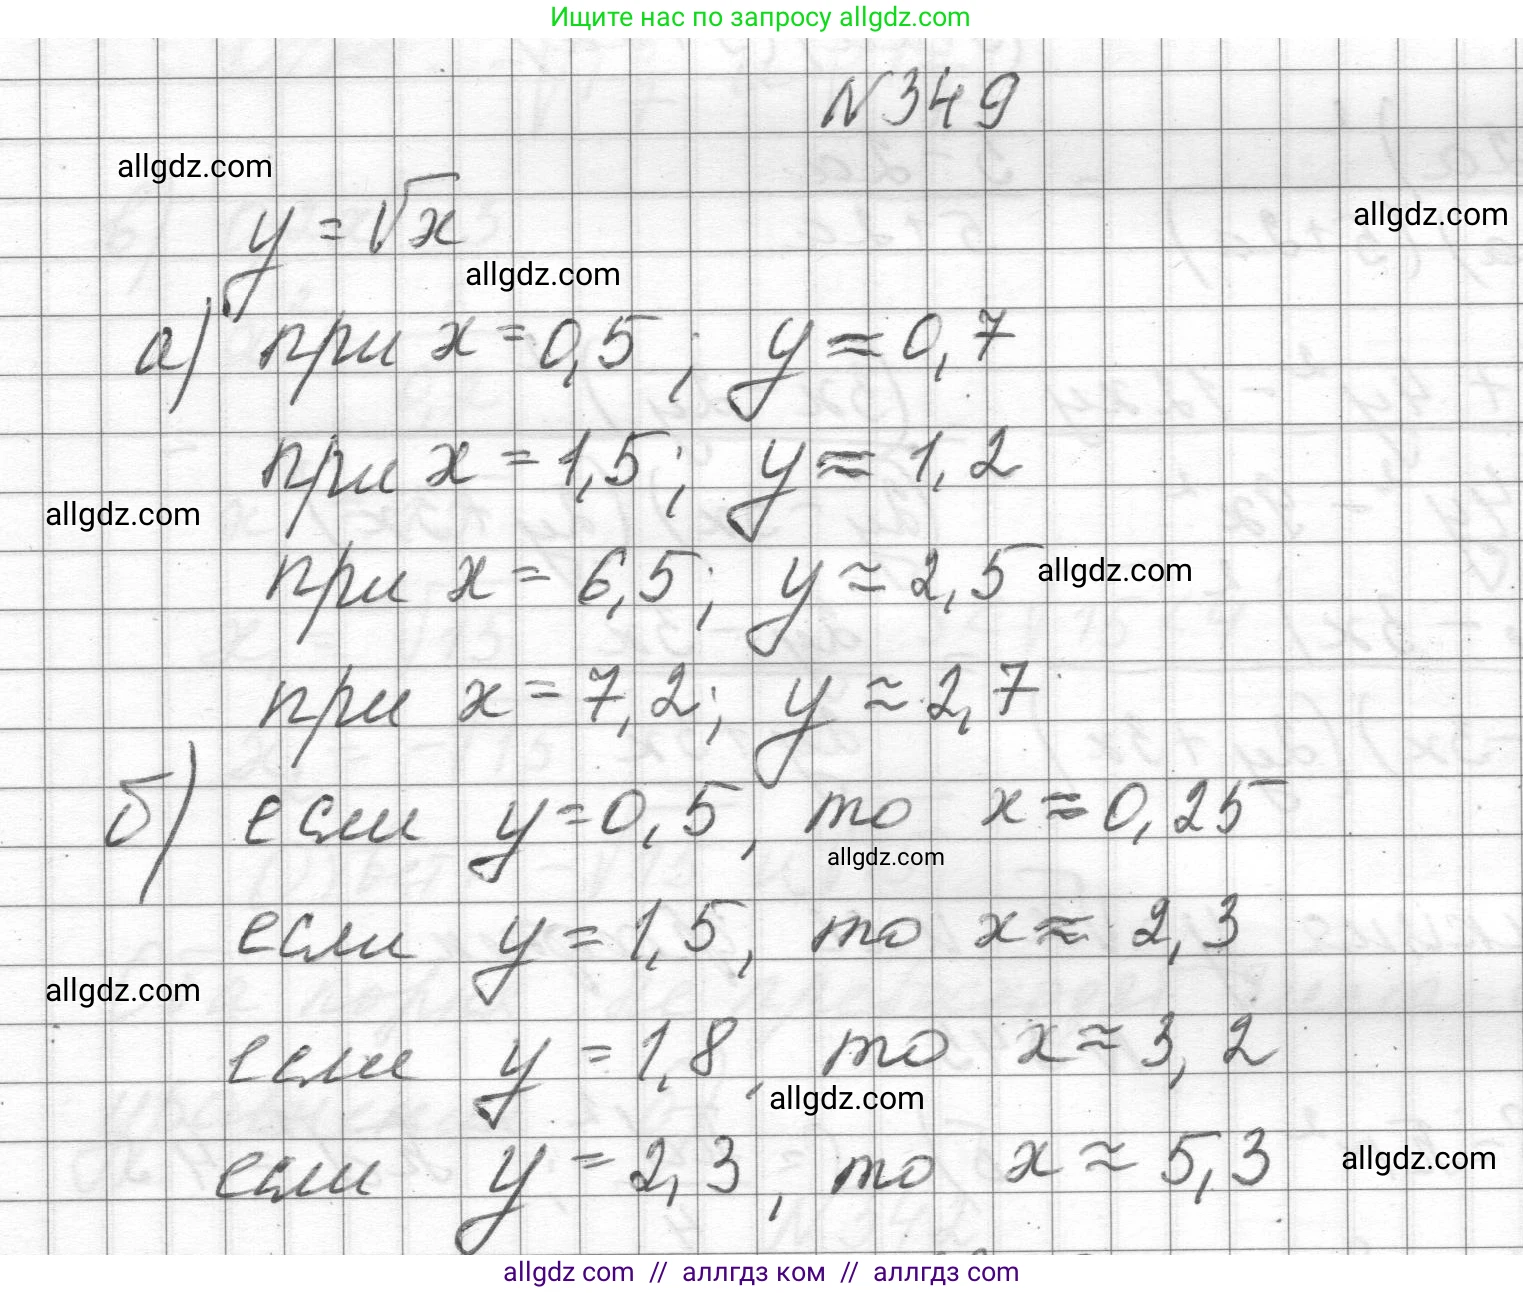 Ищите нас по запросу allgdz.com
N349
allgdz.com
allgdz.com
y = √x
allgdz.com
а) при x = 0,5 ; y ≈ 0,7
при x = 1,5 ; y ≈ 1,2
allgdz.com
при x = 6,5 ; y ≈ 2,5
allgdz.com
при x = 7,2 ; y ≈ 2,7
б) если y = 0,5 , то x ≈ 0,25
allgdz.com
если y = 1,5 , то x ≈ 2,3
allgdz.com
если y = 1,8 , то x ≈ 3,2
allgdz.com
если y = 2,3 , то x ≈ 5,3
allgdz.com
allgdz com // аллгдз ком // аллгдз com